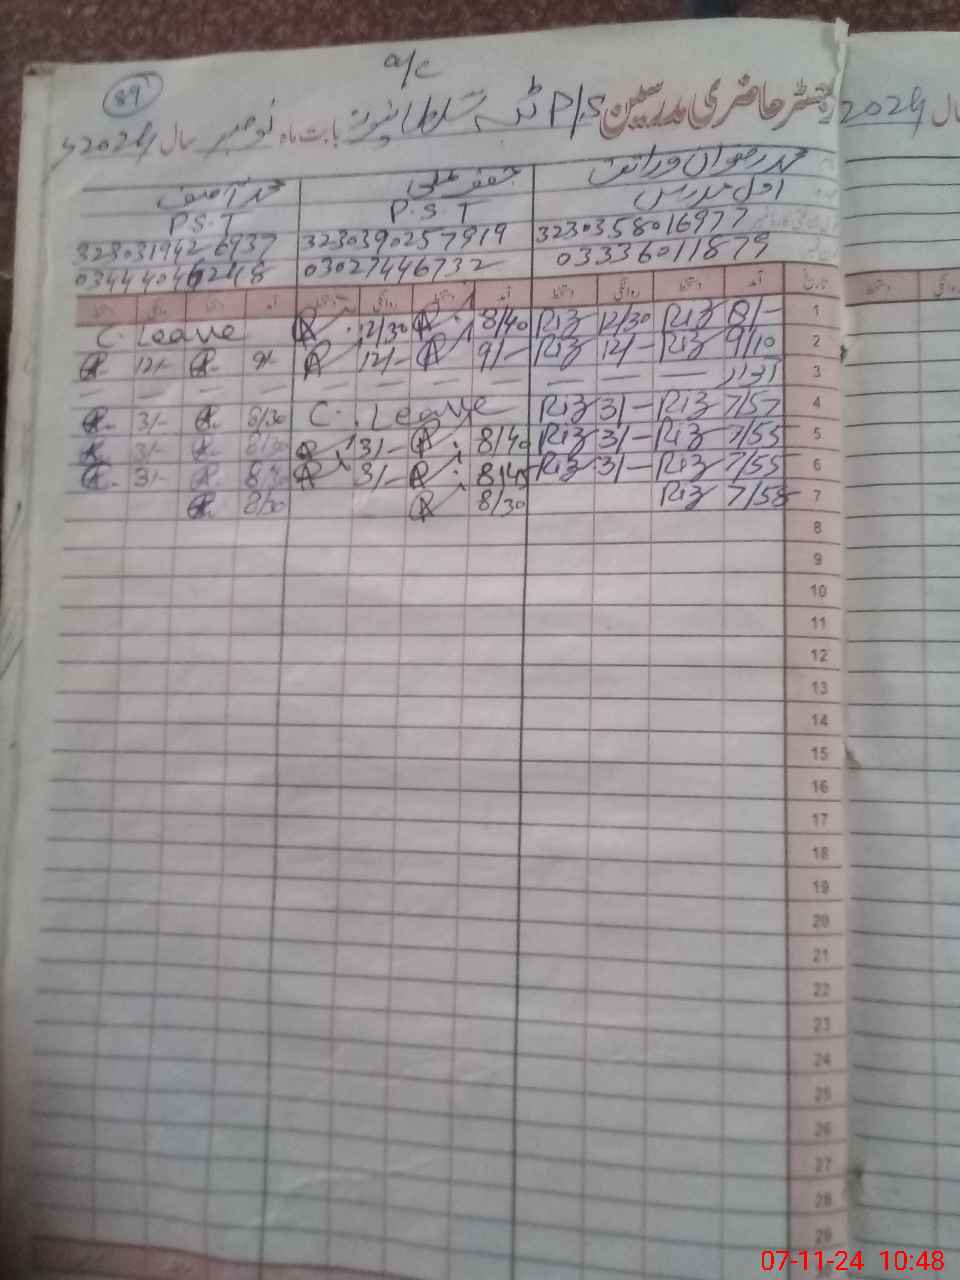 89
a/c
رجسٹر حاضری مدرسین P/S بابت ماہ نومبر سال 2024ء
2024 سال
محمد رضوان جعفر علی محمد آصف
اول مدرس P.S.T P.S.T
3230358016977 3230390257919 3230319426937
03336011879 03027446732 03444046248
تاریخ آمد دستخط روانگی دستخط آمد دستخط روانگی دستخط آمد دستخط روانگی دستخط
1 8/- Riz 12/30 Riz 8/40 12/30 C. Leave
2 9/10 Riz 12/- Riz 9/- 12/- 9/- 12/-
3 اتوار — — — — — — — — — —
4 7/57 Riz 3/- Riz C. Leave 8/30 3/-
5 7/55 Riz 3/- Riz 8/40 3/- 8/30 3/-
6 7/55 Riz 3/- Riz 8/40 3/- 8/30 3/-
7 7/58 Riz 8/30 8/30
8
9
10
11
12
13
14
15
16
17
18
19
20
21
22
23
24
25
26
27
28
29
07-11-24 10:48